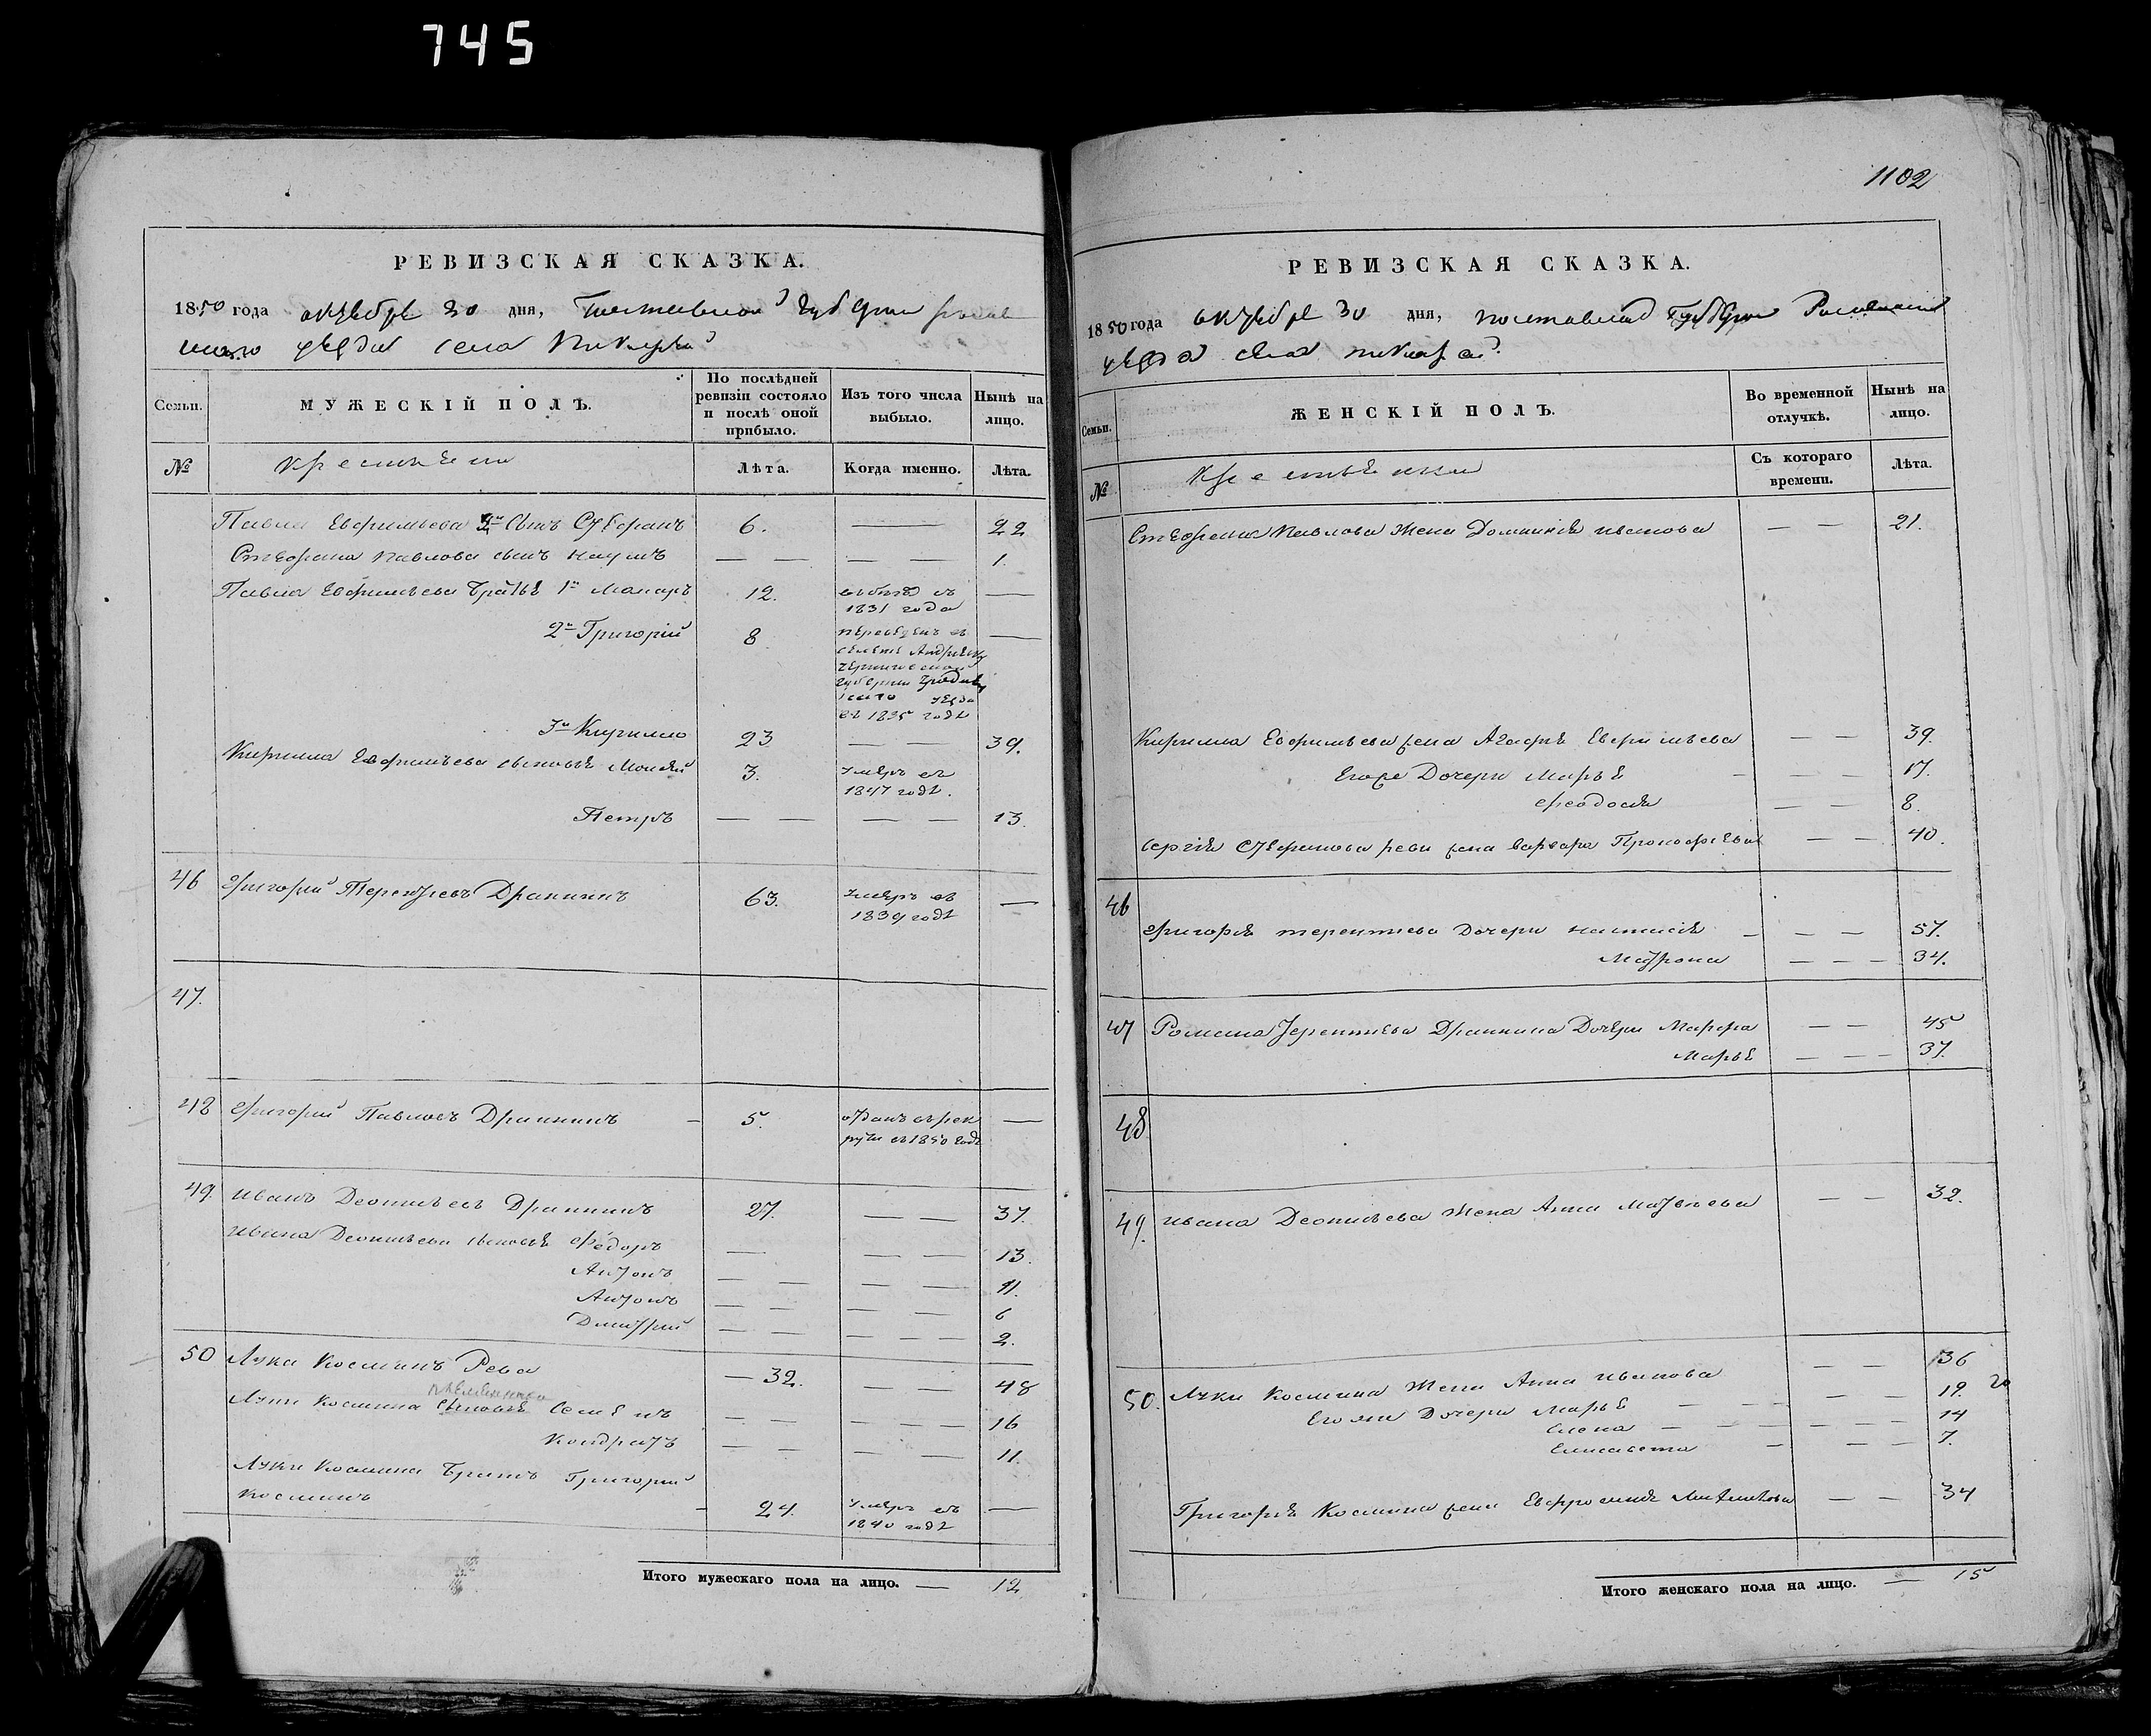 745
РЕВИЗСКАЯ СКАЗКА.
1850 года октября 30 дня, Полтавской губернии Ромен
скаго уезда села
МУЖЕСКІЙ ПОЛЪ.
Семьи.
По послѣдней ревизіи состояло и послѣ оной прибыло.
Изъ того числа выбыло.
Нынѣ на лицо.
№ крестьяне Лѣта. Когда именно. Лѣта.
Павла Ефимьева 2й сынъ Стефанъ 6. — — 22
Стефана Павлова сынъ Наумъ — — — — 1.
Павла Ефимьева братья 1й Макаръ 12. въ бегах съ —
1831 года
2й Григорій 8 переведенъ въ —
Черниговской
губернии
уезда
въ 1835 годе
3й Кирилло 23 — — 39.
Кирилла Ефимьева сыновья Моисей 3. умеръ въ
1847 годе.
Петръ — — — — 13.
46 Григорий Терентьевъ Дранникъ 63. умеръ въ —
1839 годе
47.
48 Григорий Павловъ Дранникъ - 5. отданъ въ рек —
руты въ 1850 годе
49. Иванъ Леонтьевъ Дранникъ 27. — — 37.
Ивана Леонтьева сыновья Федоръ — — — 13.
Антонъ — — — — 11.
Антонъ — — — — 6
Дмитрий — — — — 2.
50 Лука Косминъ Рева — 32. — — 48
племянника
Луки Космина сыновья Семенъ — — — — 16
Кондратъ — — — — 11.
Луки Космина братъ Григорий
Косминъ - 24. умеръ въ —
1840 годе
Итого мужескаго пола на лицо. — 12.
1102
РЕВИЗСКАЯ СКАЗКА.
1850 года октября 30 дня, Полтавской губернии Роменского
уезда села
Семьи.
ЖЕНСКІЙ ПОЛЪ.
Во временной отлучкѣ.
Нынѣ на лицо.
№ крестьянки Съ котораго времени. Лѣта.
Стефана Павлова жена Домникія Иванова — — 21.
Кирилла Ефимьева жена Агафья — — 39.
Егоже дочери Марья - — 17.
Феодосія — — 8.
Сергія Стефанова Реви жена Варвара Прокофіева — — 40.
46
Григорья Терентиева дочери Настасія - — — 57.
Матрона — — — 34.
47 Романа Терентиева Дранника дочери Марфа — — 45
Марья — — — 37.
48
49. Ивана Леонтьева жена Анна Матвиева — — 32.
50. Луки Космина жена Анна Иванова — — 36
Его же дочери Марья — — — — 19. 20
Елена — — — — 14
Елисавета — — — 7.
Григорья Космина жена Ефросинья — — 34
Итого женскаго пола на лицо. — 15